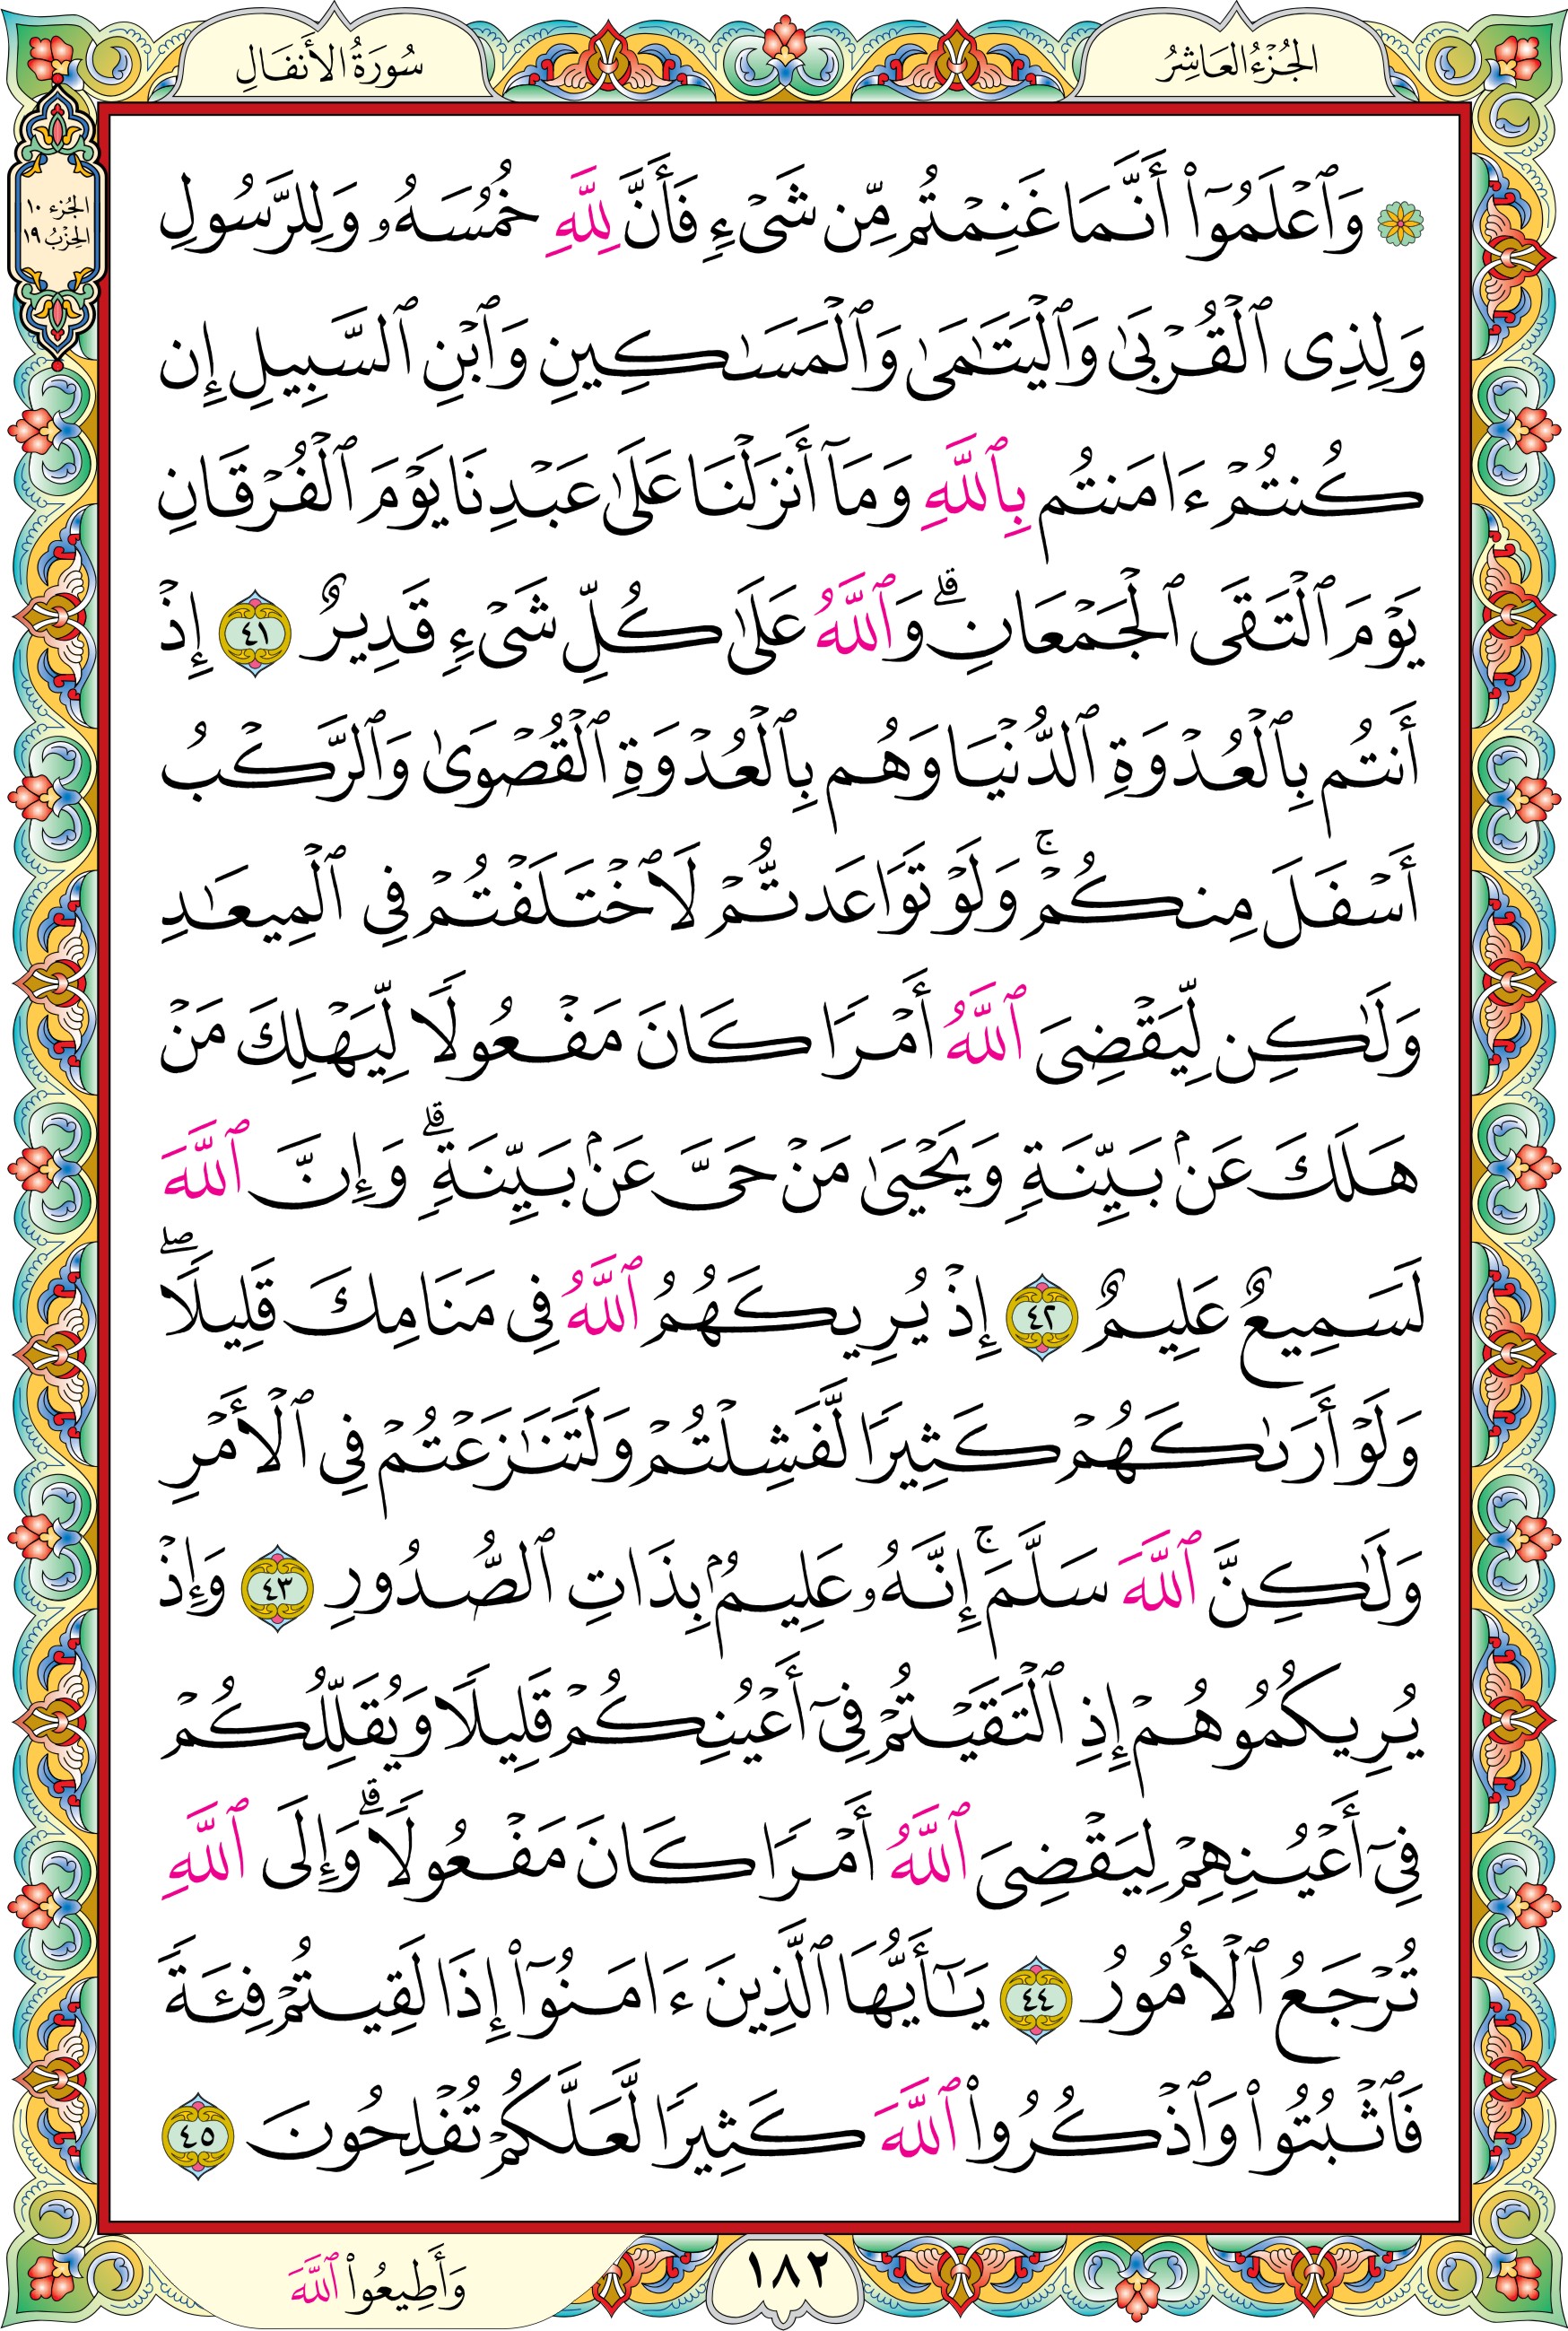 الجُزْءُ العَاشِرُ
سُورَةُ الأَنفَالِ
الجُزء ١٠
الحِزْبُ ١٩
۞ وَٱعْلَمُوٓا۟ أَنَّمَا غَنِمْتُم مِّن شَىْءٍ فَأَنَّ لِلَّهِ خُمُسَهُۥ وَلِلرَّسُولِ
وَلِذِى ٱلْقُرْبَىٰ وَٱلْيَتَٰمَىٰ وَٱلْمَسَٰكِينِ وَٱبْنِ ٱلسَّبِيلِ إِن
كُنتُمْ ءَامَنتُم بِٱللَّهِ وَمَآ أَنزَلْنَا عَلَىٰ عَبْدِنَا يَوْمَ ٱلْفُرْقَانِ
يَوْمَ ٱلْتَقَى ٱلْجَمْعَانِ ۗ وَٱللَّهُ عَلَىٰ كُلِّ شَىْءٍ قَدِيرٌ ٤١ إِذْ
أَنتُم بِٱلْعُدْوَةِ ٱلدُّنْيَا وَهُم بِٱلْعُدْوَةِ ٱلْقُصْوَىٰ وَٱلرَّكْبُ
أَسْفَلَ مِنكُمْ ۚ وَلَوْ تَوَاعَدتُّمْ لَٱخْتَلَفْتُمْ فِى ٱلْمِيعَٰدِ
وَلَٰكِن لِّيَقْضِىَ ٱللَّهُ أَمْرًا كَانَ مَفْعُولًا لِّيَهْلِكَ مَنْ
هَلَكَ عَنۢ بَيِّنَةٍ وَيَحْيَىٰ مَنْ حَىَّ عَنۢ بَيِّنَةٍ ۗ وَإِنَّ ٱللَّهَ
لَسَمِيعٌ عَلِيمٌ ٤٢ إِذْ يُرِيكَهُمُ ٱللَّهُ فِى مَنَامِكَ قَلِيلًا ۖ
وَلَوْ أَرَىٰكَهُمْ كَثِيرًا لَّفَشِلْتُمْ وَلَتَنَٰزَعْتُمْ فِى ٱلْأَمْرِ
وَلَٰكِنَّ ٱللَّهَ سَلَّمَ ۚ إِنَّهُۥ عَلِيمٌۢ بِذَاتِ ٱلصُّدُورِ ٤٣ وَإِذْ
يُرِيكُمُوهُمْ إِذِ ٱلْتَقَيْتُمْ فِىٓ أَعْيُنِكُمْ قَلِيلًا وَيُقَلِّلُكُمْ
فِىٓ أَعْيُنِهِمْ لِيَقْضِىَ ٱللَّهُ أَمْرًا كَانَ مَفْعُولًا ۗ وَإِلَى ٱللَّهِ
تُرْجَعُ ٱلْأُمُورُ ٤٤ يَٰٓأَيُّهَا ٱلَّذِينَ ءَامَنُوٓا۟ إِذَا لَقِيتُمْ فِئَةً
فَٱثْبُتُوا۟ وَٱذْكُرُوا۟ ٱللَّهَ كَثِيرًا لَّعَلَّكُمْ تُفْلِحُونَ ٤٥
١٨٢
وَأَطِيعُوا۟ ٱللَّهَ